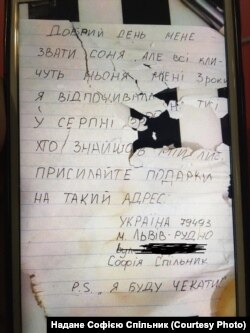 ДОБРИЙ ДЕНЬ МЕНЕ
ЗВАТИ СОНЯ. АЛЕ ВСІ КЛИ-
ЧУТЬ НЬОНЯ. МЕНІ 3 РОКИ
Я ВІДПОЧИВАЛА
У СЕРПНІ
ХТО ЗНАЙШОВ МІЙ ЛИС
ПРИСИЛАЙТЕ ПОДАРКИ
НА ТАКИЙ АДРЕС.
УКРАЇНА 79493
М. ЛЬВІВ-РУДНО
СОФІЯ СПІЛЬНИК
P.S. Я БУДУ ЧЕКАТИ
Надане Софією Спільник (Courtesy Photo)